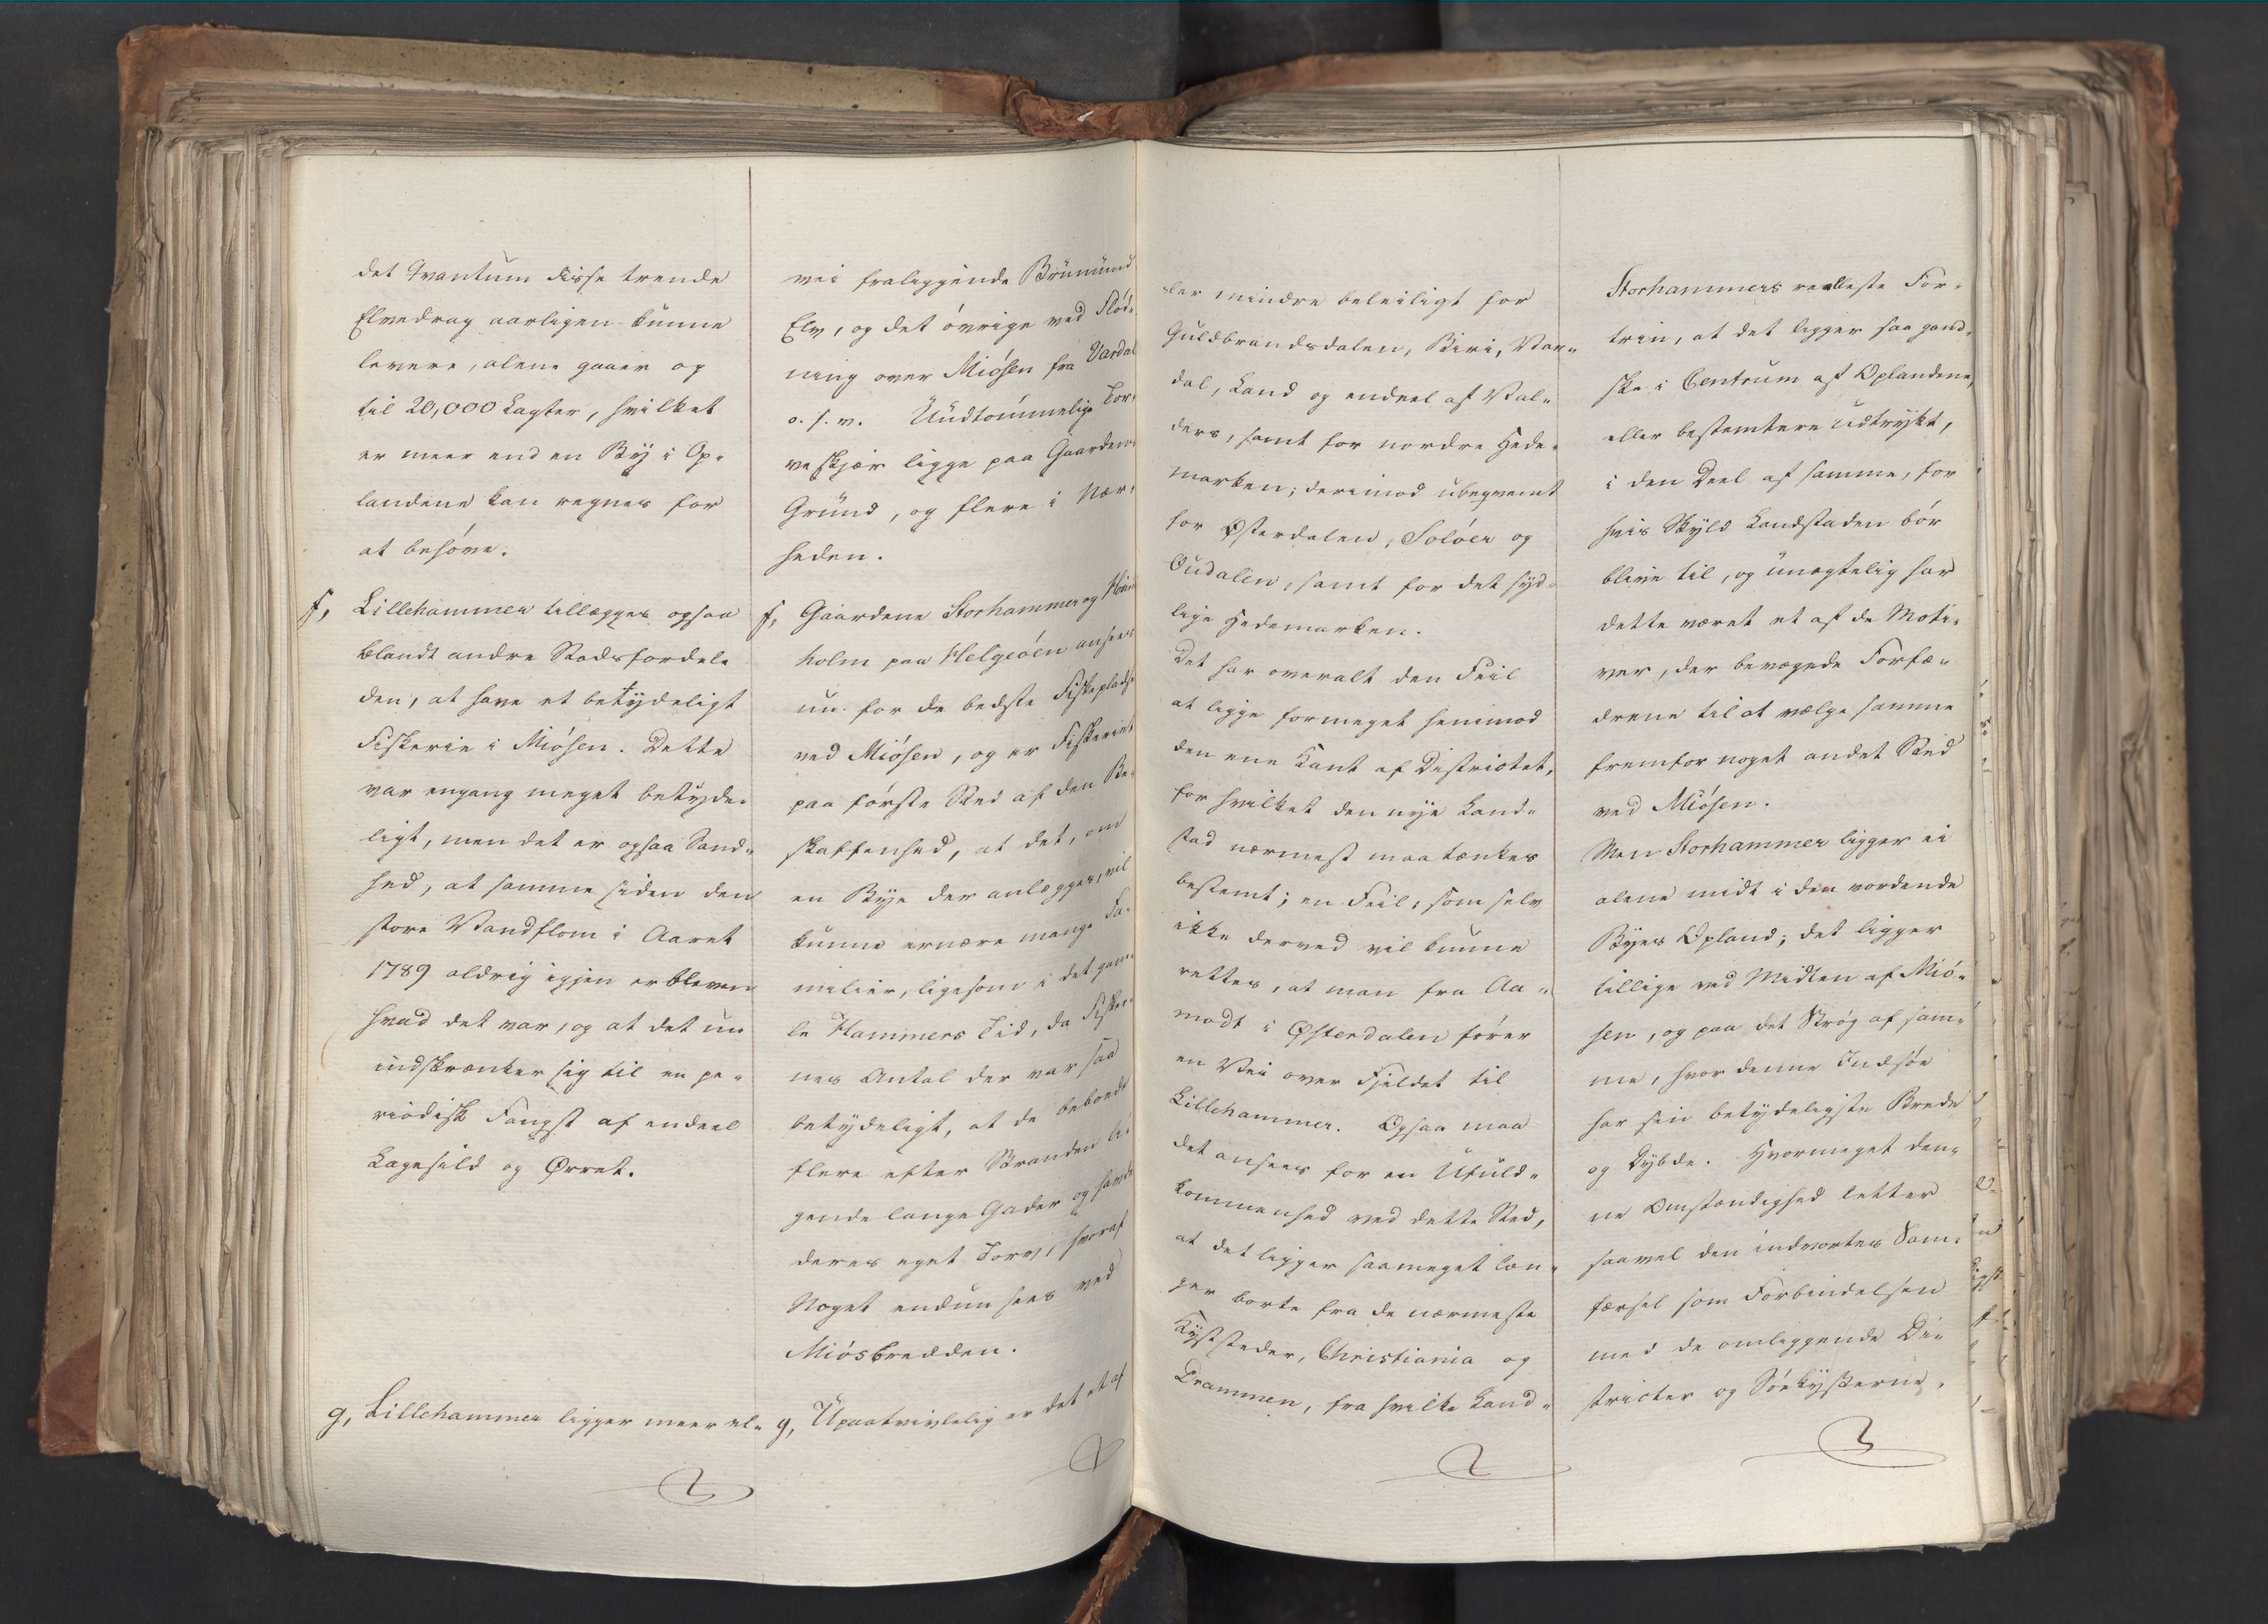 det Qvantum disse trende
Elvedrag aarligen kunne
levere, alene gaaer op
til 20,000 Lagter, hvilket
er meer end en By i Op-
landene kan regnes for
at behöve.
f, Lillehammer tillægges ogsaa
blandt andre Stadsfordele
den, at have et betydeligt
Fiskerie i Miösen. Dette
var engang meget betyde-
ligt, men det er ogsaa Sand-
hed, at samme siden den
store Vandflom i Aaret
1789 aldrig igjen er bleven
hvad det var, og at det nu
indskrænker sig til en pe-
riodisk Fangst af endeel
Lagesild og Ørret.
g, Lillehammer ligger meer el-
vei fraliggende Brumund
Elv, og det övrige ved Flöd-
ning over Miösen fra Vardal
o. s. v. Uudtömmelige Tor-
veskjær ligge paa Gaardens
Grund, og flere i Nær-
heden.
f, Gaardene Storhammer og
holm paa Helgeöen ansees
nu for de bedste Fiskepladse
ved Miösen, og er Fiskeriet
paa förste Sted af den Be-
skaffenhed, at det, om
en Bye der anlægges, vil
kunne ernære mange Fa-
milier, ligesom i det gam-
le Hammers Tid, da Fisker-
nes Antal der var saa
betydeligt, at de beboede
flere efter Stranden lig-
gende lange Gader og havde
deres eget Torv, hvoraf
Noget endnu sees ved
Miösbredden.
g, Upaatvivlelig er det et af
ler mindre beleiligt for
Guldbrandsdalen, Biri, Var-
dal, Land og endeel af Val-
ders, samt for nordre Hede-
marken; derimod ubeqvemt
for Østerdalen, Solöer og
Oudalen, samt for det syd-
lige Hedemarken.
Det har overalt den Feil
at ligge formeget henimod
den ene Kant af Districtet,
for hvilket den nye Land-
stad nærmest maa tænkes
bestemt; en Feil, som selv
ikke derved vil kunne
rettes, at man fra Aa-
modt i Østerdalen förer
en Vei over Fjeldet til
Lillehammer. Ogsaa maa
det ansees for en Ufuld-
kommenhed ved dette Sted,
at det ligger saameget læn-
ger borte fra de nærmeste
Kyststeder, Christiania og
Drammen, fra hvilke Land-
Storhammers realleste For-
trin, at det ligger saa gand-
ske i Centrum af Oplandene,
eller bestemtere udtrykt,
i den Deel af samme, for
hvis Skyld Landstaden bör
blive til, og unægtelig har
dette været et af de Moti-
ver, der bevægede Forfæ-
drene til at vælge samme
fremfor noget andet Sted
ved Miösen.
Men Storhammer ligger ei
alene midt i den vordende
Byes Opland; det ligger
tillige ved Midten af Miö-
sen, og paa det Strög af sam-
me, hvor denne Indsöe
har sin betydeligste Brede
og Dybde. Hvormeget den-
ne Omstændighed letter
saavel den indvortes Sam-
færsel som Forbindelsen
med de omliggende Di-
stricter og Söekysterne,